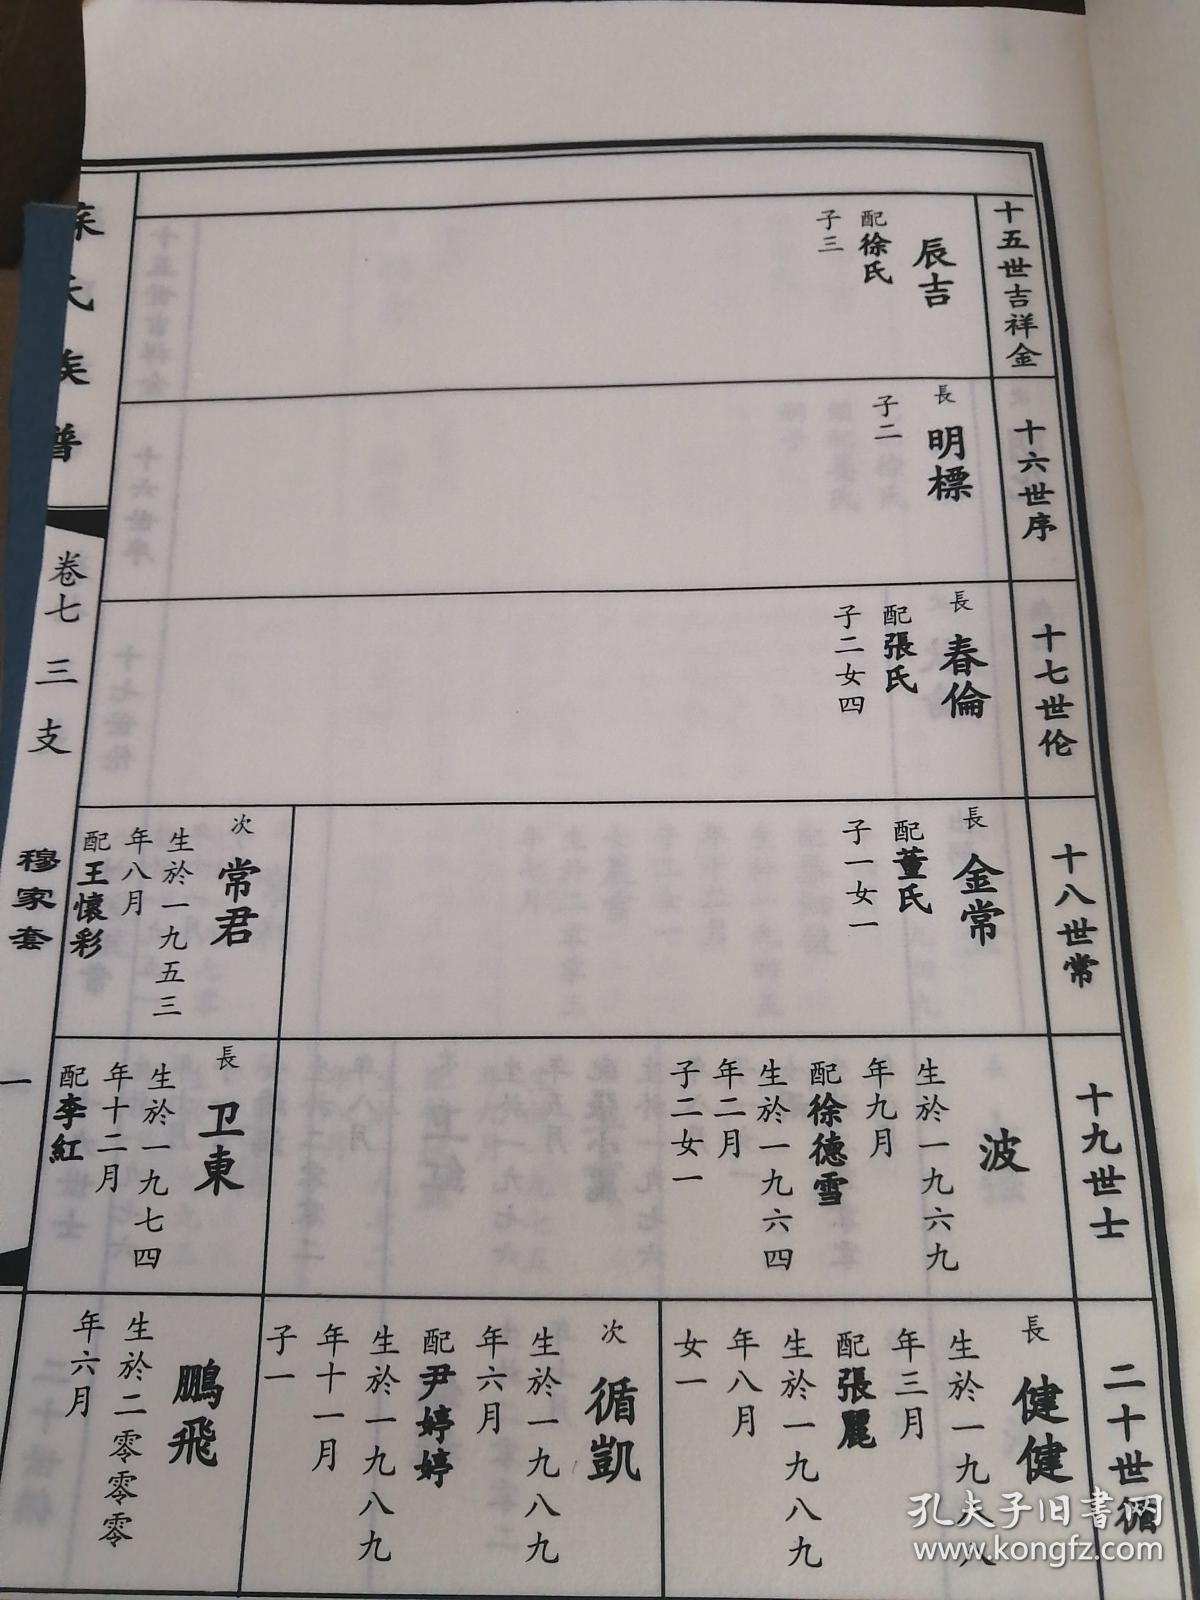 十五世吉祥金
辰吉
配徐氏
子三
十六世序
長
明標
子二
十七世伦
長
春倫
配張氏
子二女四
十八世常
長
金常
配董氏
子一女一
次
常君
生於一九五三
年八月
配王懷彩
十九世士
波
生於一九六九
年九月
配徐德雪
生於一九六四
年二月
子二女一
長
卫東
生於一九七四
年十二月
配李紅
二十世循
長
健健
生於一九八八
年三月
配張麗
生於一九八九
年八月
女一
次
循凱
生於一九八九
年六月
配尹婷婷
生於一九八九
年十一月
子一
鵬飛
生於二零零零
年六月
氏族譜
卷七 三支
穆家套
一
孔夫子旧书网
www.kongfz.com